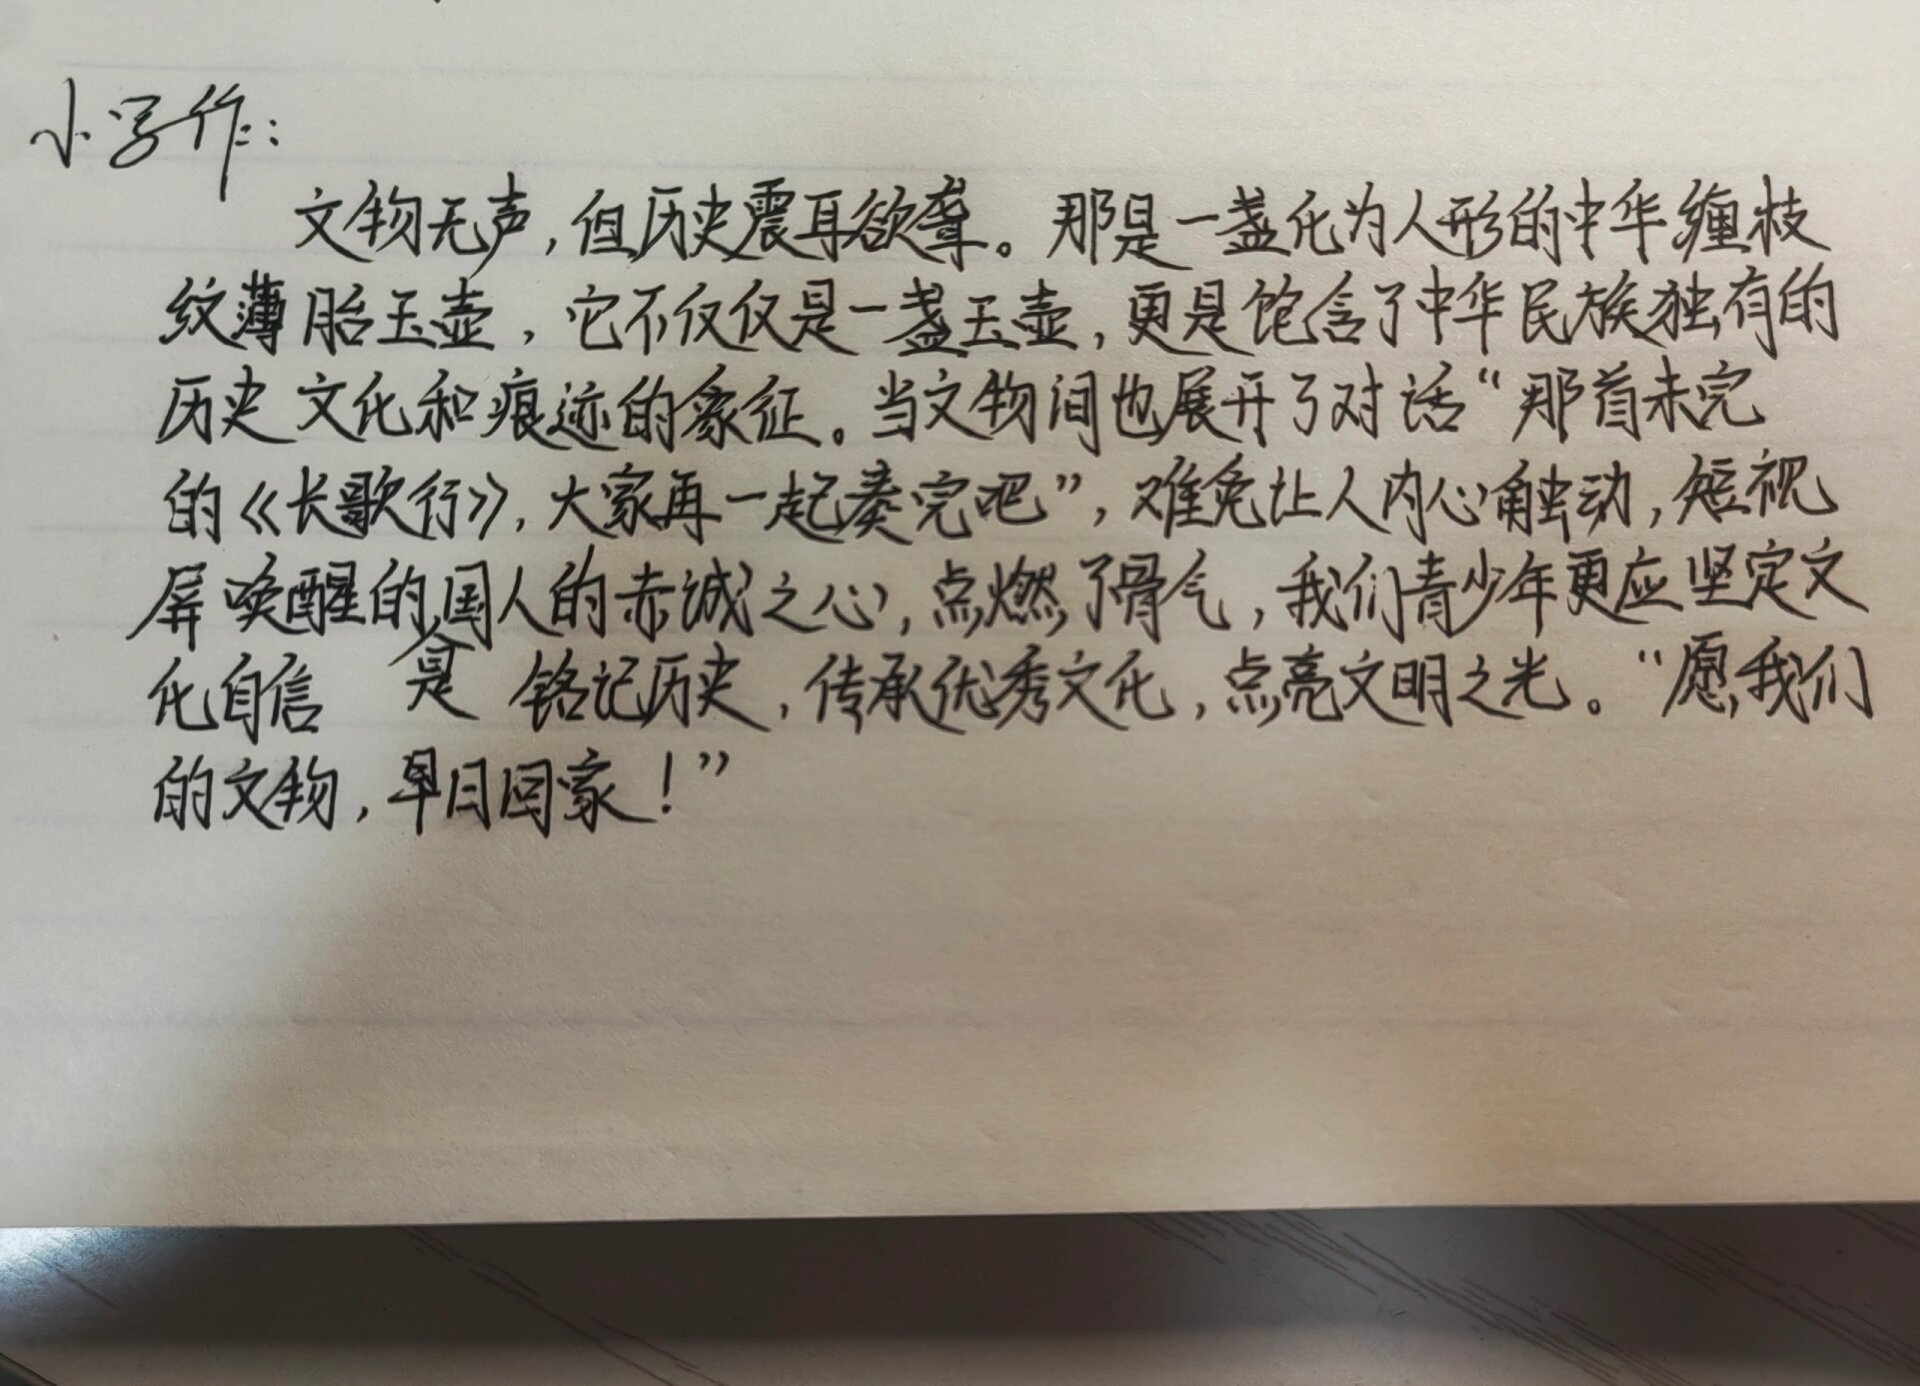 小写作：
文物无声，但历史震耳欲聋。那是一盏化为人形的中华缠枝
纹薄胎玉壶，它不仅仅是一盏玉壶，更是饱含了中华民族独有的
历史文化和痕迹的象征。当文物间也展开了对话“那首未完
的《长歌行》，大家再一起奏完吧”，难免让人内心触动，短视
屏唤醒的国人的赤诚之心，点燃了骨气，我们青少年更应坚定文
化自信 铭记历史，传承优秀文化，点亮文明之光。“愿我们
的文物，早日回家！”